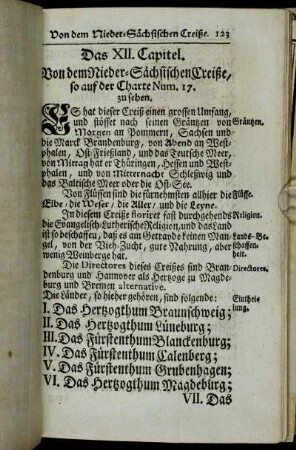 Von dem Nieder-Sächsischen Creiße. 123
Das XII. Capitel.
Von dem Nieder-Sächsischen Creiße,
so auf der Charte Num. 17.
zu sehen.
ES hat dieser Creiß einen grossen Umfang,
und stösset nach seinen Gräntzen von Gräntzen.
Morgen an Pommern, Sachsen und
die Marck Brandenburg, von Abend an West-
phalen, Ost-Frießland, und das Teutsche Meer,
von Mittag hat er Thüringen, Hessen und West-
phalen, und von Mitternacht Schleßwig und
das Baltische Meer oder die Ost-See.
Von Flüssen sind die fürnehmsten allhier die Flüsse.
Elbe, die Weser, die Aller, und die Leyne.
In diesem Creiße floriret fast durchgehends Religion.
die Evangelisch-Lutherische Religion, und das Land
ist so beschaffen, daß es am Getraide keinen Man- Lands-Be-
gel, von der Vieh-Zucht, gute Nahrung, aber schaffen-
wenig Weinberge hat. heit.
Die Directores dieses Creißes sind Bran- Directores.
denburg und Hannover als Hertzoge zu Magde-
burg und Bremen alternative.
Die Länder, so hieher gehören, sind folgende: Einthei-
I. Das Hertzogthum Braunschweig; lung.
II. Das Hertzogthum Lüneburg;
III. Das Fürstenthum Blanckenburg;
IV. Das Fürstenthum Calenberg;
V. Das Fürstenthum Grubenhagen;
VI. Das Hertzogthum Magdeburg;
VII. Das